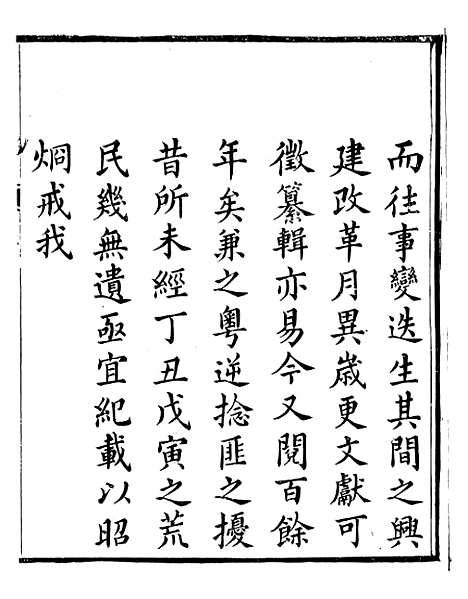 而往事變迭生其間之興
建改革月異歲更文獻可
徵纂輯亦易今又閱百餘
年矣兼之粵逆捻匪之擾
昔所未經丁丑戊寅之荒
民幾無遺亟宜紀載以昭
炯戒我